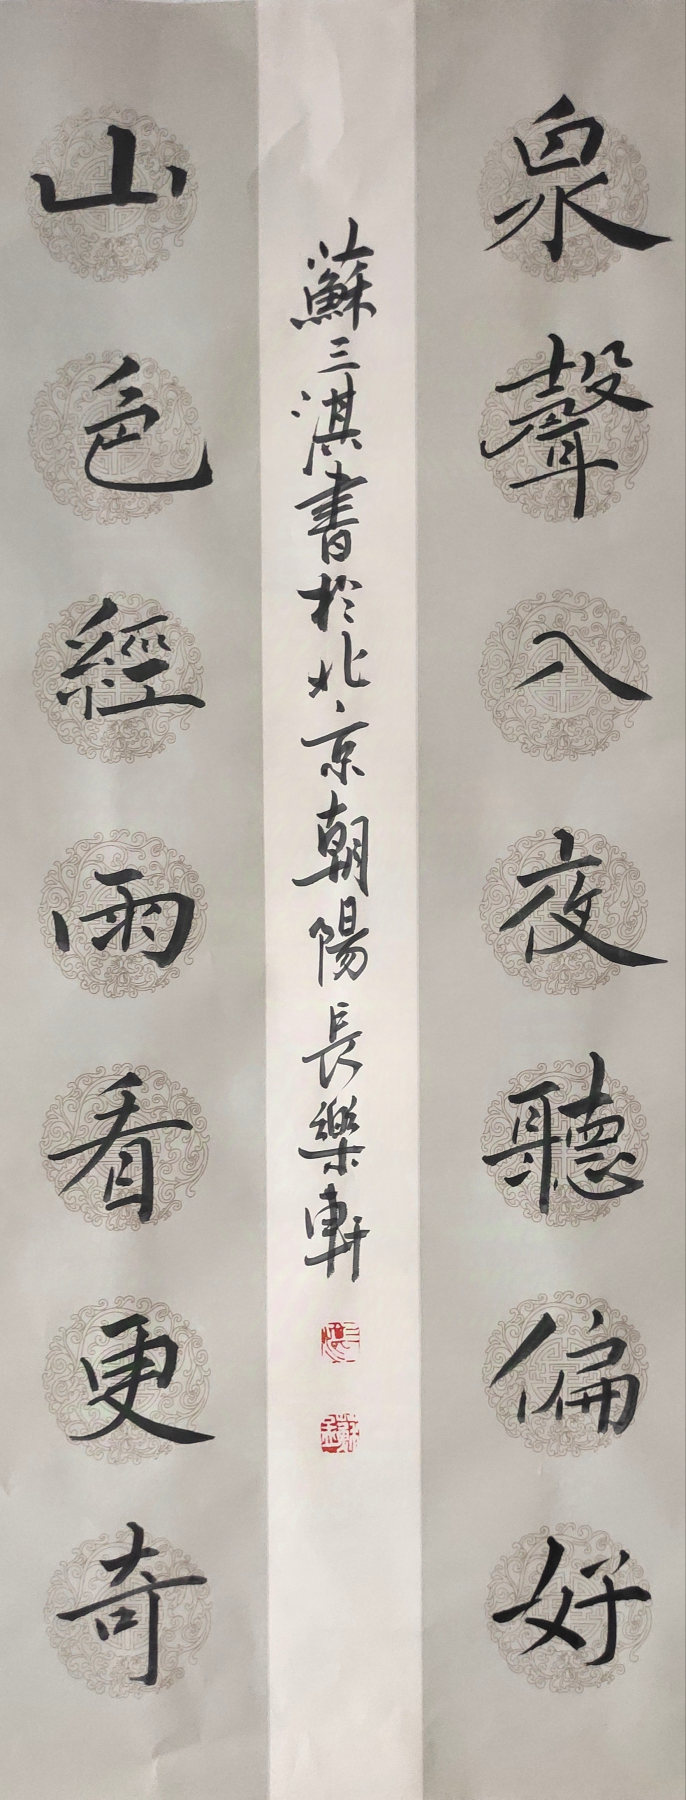 泉聲入夜聽偏好
山色經雨看更奇
蘇三淇書於北京朝陽長樂軒